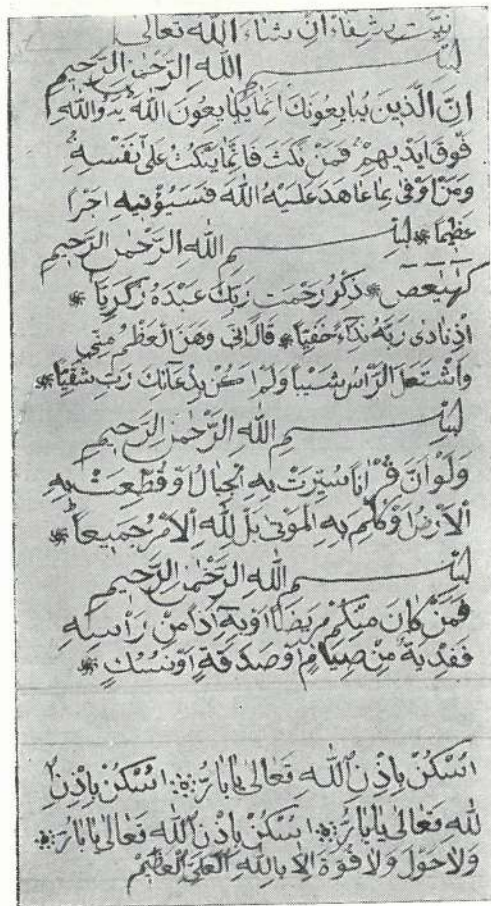 نيت شفاء ان شاء الله تعالى
بسم الله الرحمن الرحيم
ان الذين يبايعونك انما يبايعون الله يد والله
فوق ايديهم فمن نكث فانما ينكث على نفسه
ومن اوفى بما عاهد عليه الله فسيؤتيه اجرا
عظيما بسم الله الرحمن الرحيم
كهيعص ذكر رحمت ربك عبده زكريا
اذ نادى ربه نداء خفيا قال اني وهن العظم مني
واشتعل الراس شيبا ولم اكن بدعائك رب شقيا
بسم الله الرحمن الرحيم
ولو ان قرانا سيرت به الجبال او قطعت به
الارض او كلم به الموتى بل لله الامر جميعا
بسم الله الرحمن الرحيم
فمن كان منكم مريضا او به اذا من راسه
ففدية من صيام او صدقة او نسك
اسكن باذن الله تعالى يا بار اسكن باذن ا
لله تعالى يا بار اسكن باذن الله تعالى يا بار
ولا حول ولا قوة الا بالله العلي العظيم